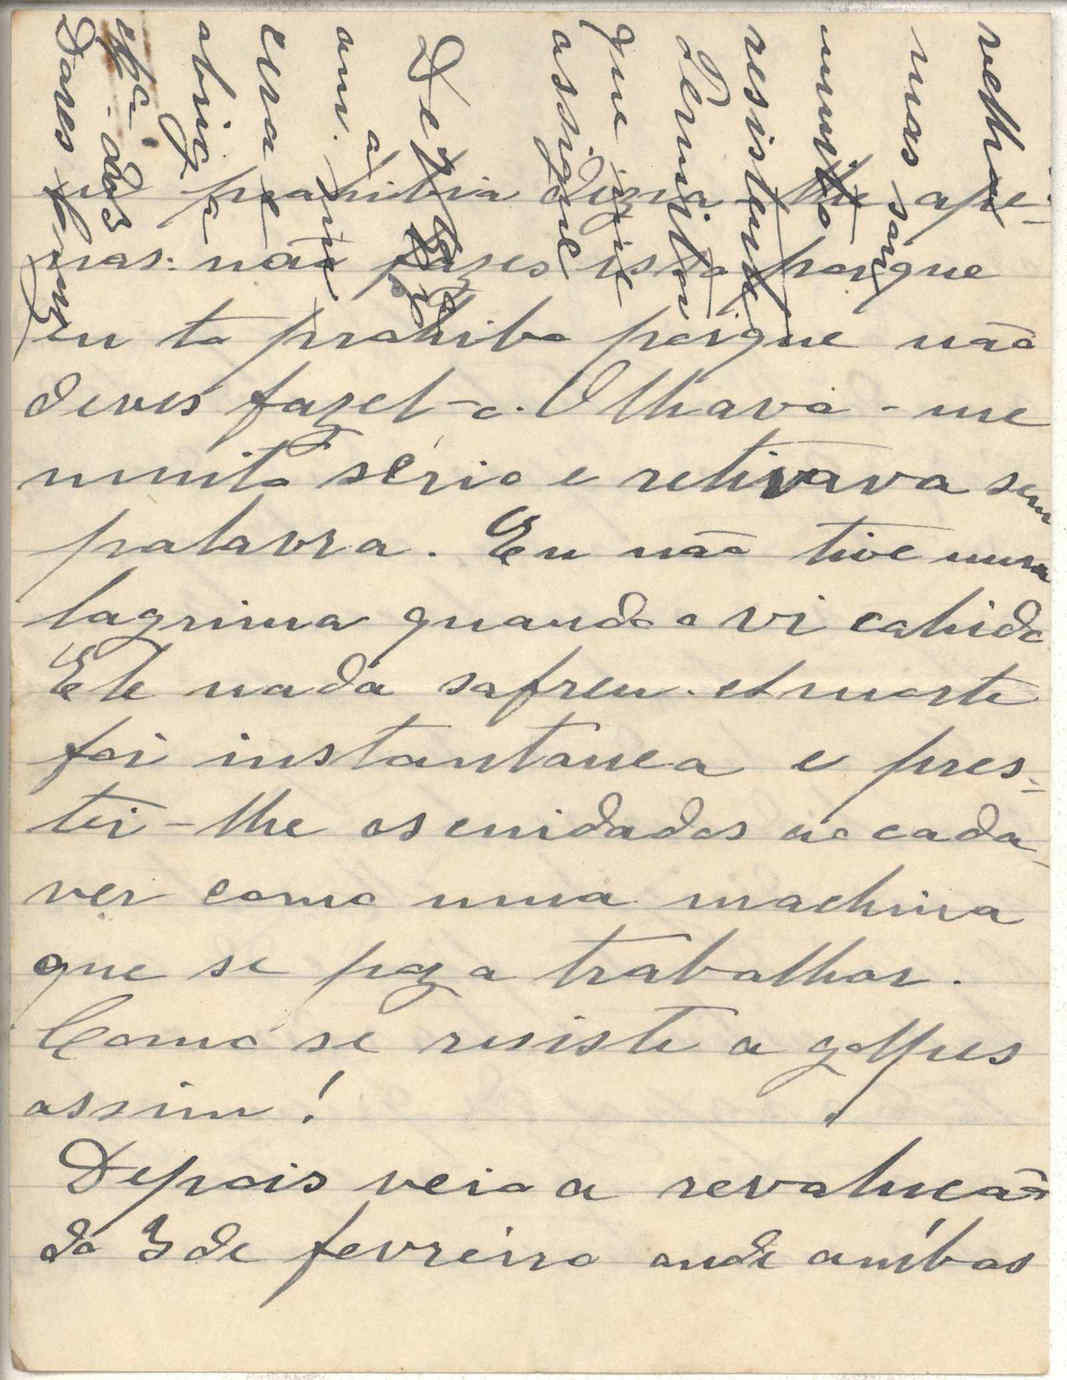 prohibia dizia-lhe ape-
nas: não fazes isso porque
eu to prohibo porque não
deves fazel-o. Olhava-me
muito sério e retirava sem
palavra. Eu não tive uma
lagrima quando o vi cahido
Ele nada sofreu. A morte
foi instantanea e pres-
tei-lhe os cuidados ao cada-
ver como uma machina
que se poz a trabalhar.
Como se resiste a golpes
assim!
Depois veio a revolucão
do 3 de fevreiro onde ambos
velha
mas sou
muito
resistente
Permita
que
assigne
De V. Exª
am.ª
cra e
obrigª
dos
Dores Cruz